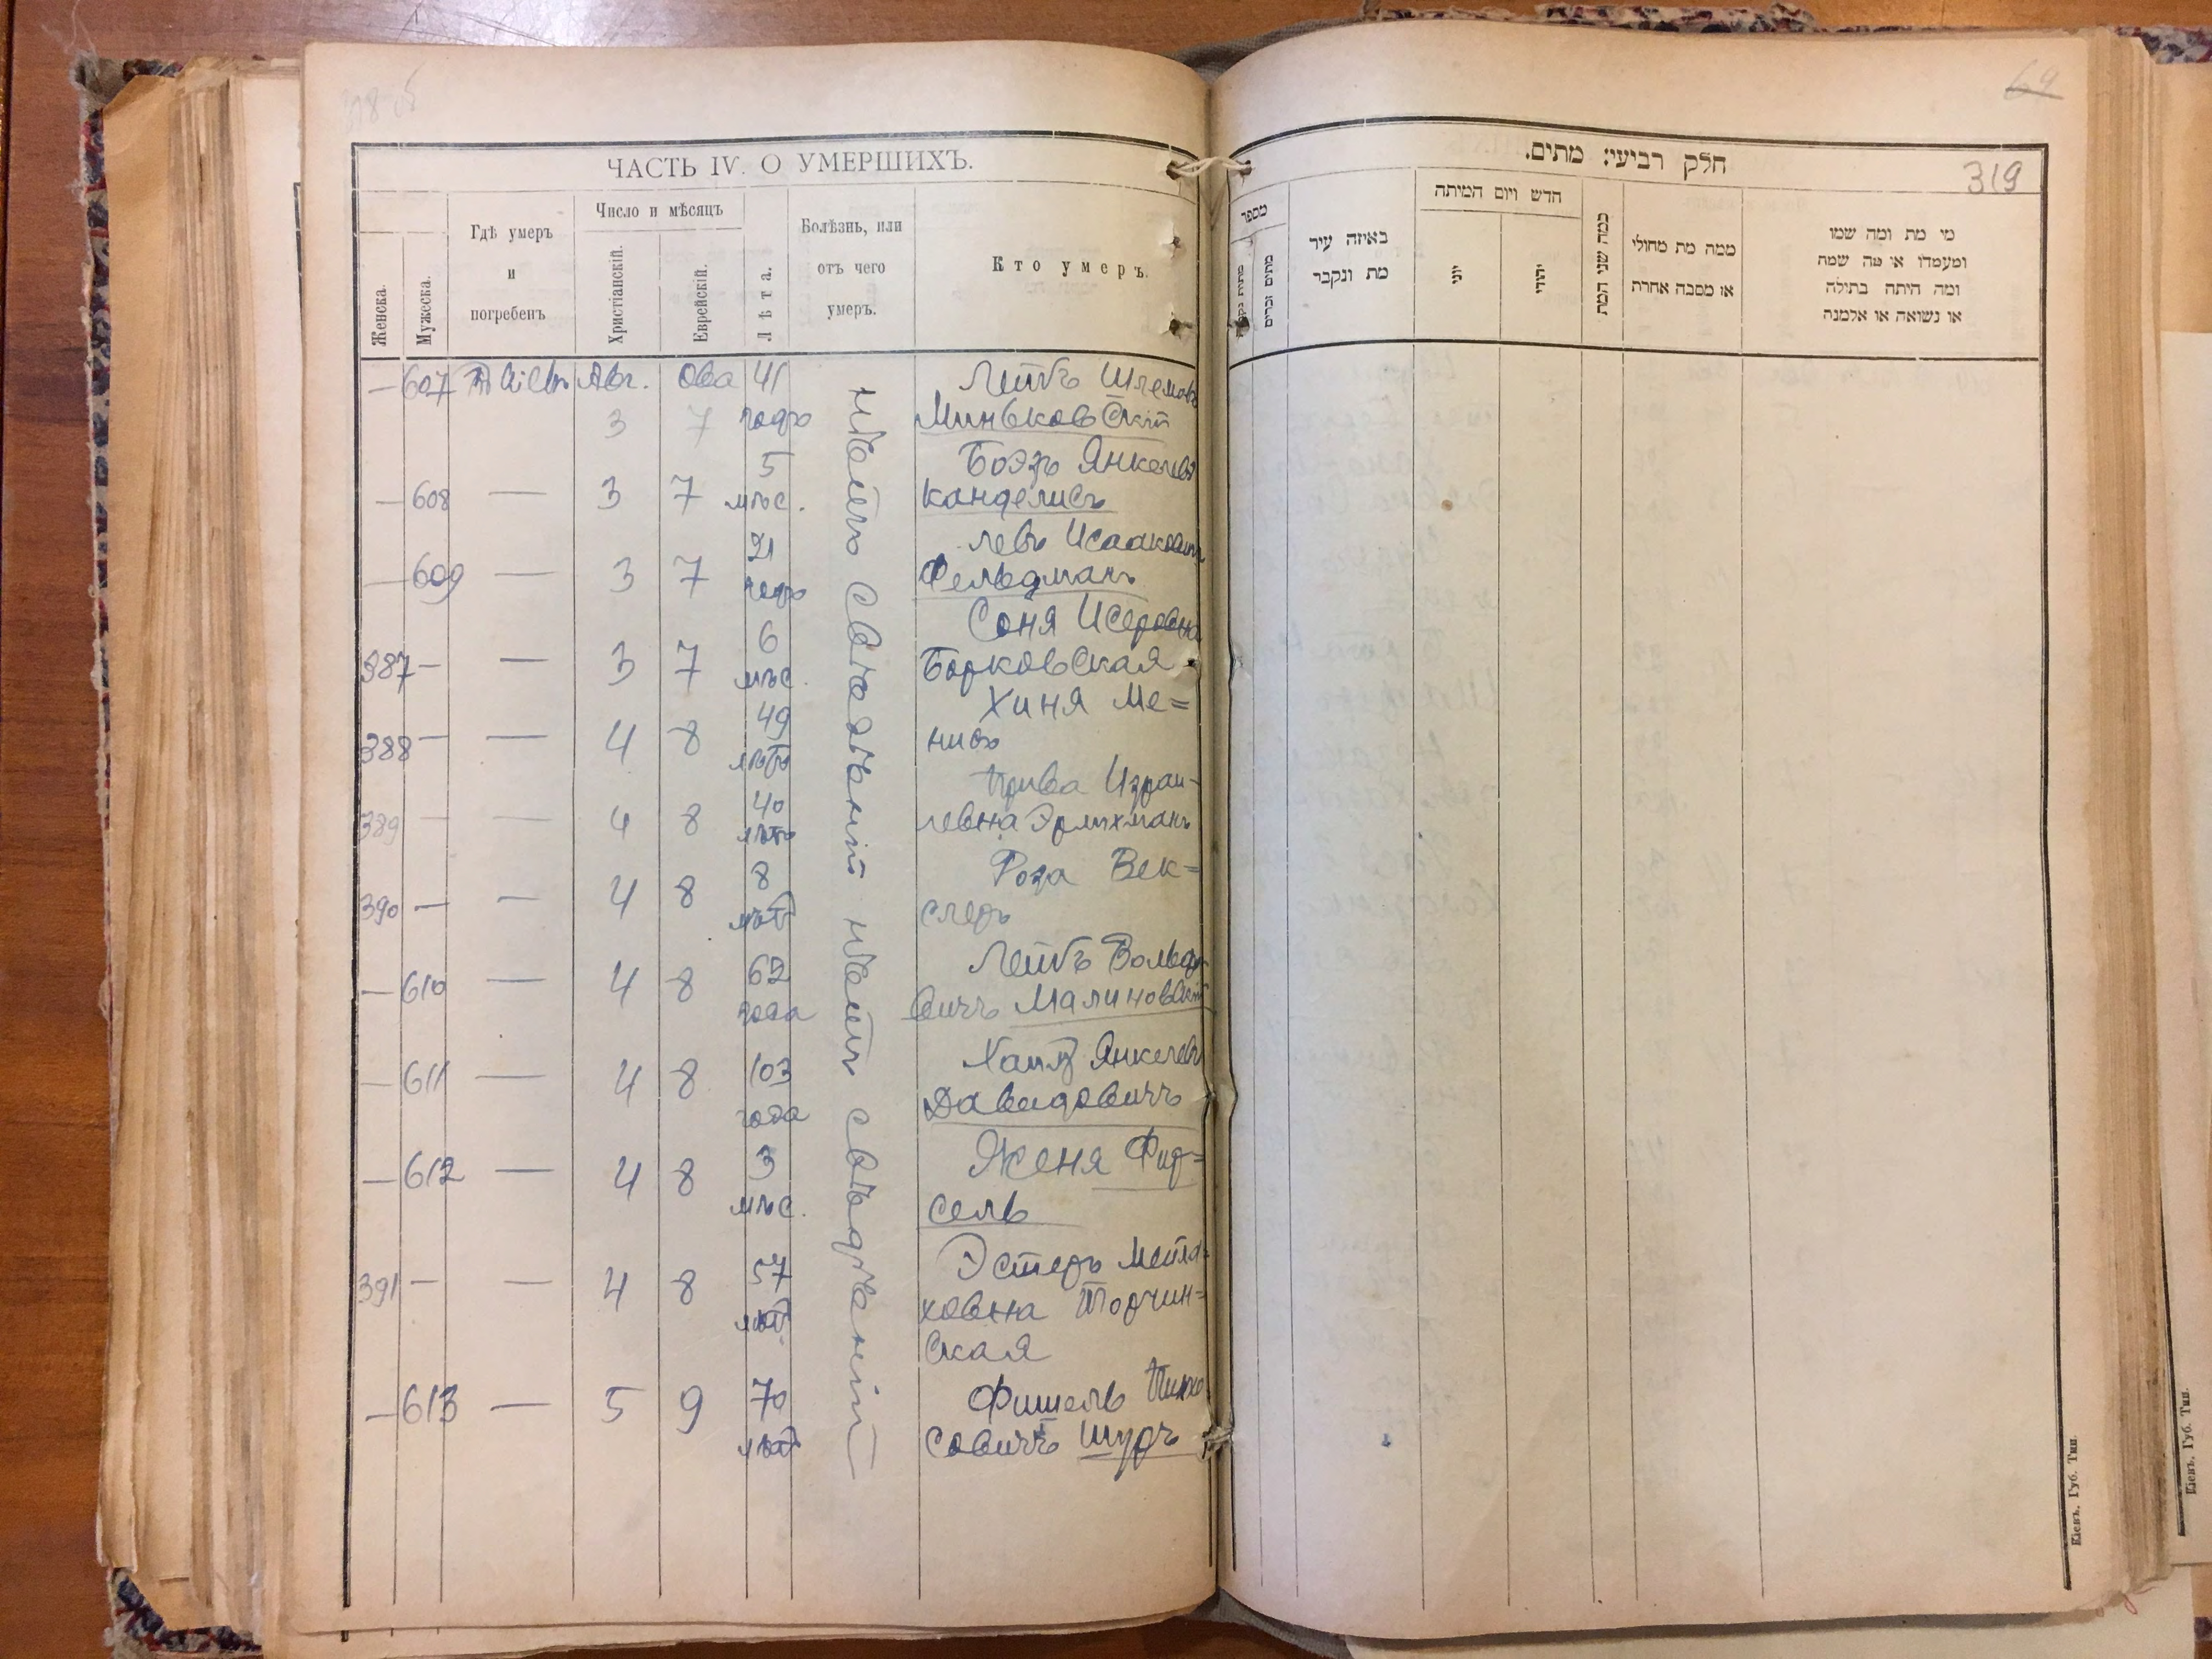 ЧАСТЬ IV. О УМЕРШИХЪ.
Женска.
Мужеска.
Гдѣ умеръ
и
погребенъ
Число и мѣсяцъ
Христіанскій.
Еврейскій.
Лѣта.
Болѣзнь, или
отъ чего
умеръ.
Кто умеръ.
— 607 Авг. Ова 41 Лейбъ Шлемов
3 7 годъ Миньковскій
5 Боэзъ Янкелев
— 608 — 3 7 мѣс. Канделисъ
21 Левъ Исаакович
— 609 — 3 7 годъ Фельдманъ
6 Соня Исеровна
387 — — 3 7 мѣс. Борковская
49 Хиня Ме=
388 — — 4 8 лѣтъ нисъ
40 Прива Израи-
389 — — 4 8 лѣтъ левна Эрлихманъ
8 Роза Век=
390 — — 4 8 лѣтъ слеръ
62 Лейбъ Вольфо
— 610 — 4 8 года вичъ Малиновскій
103 Хаимъ Янкелев
— 611 — 4 8 года Давидовичъ
3 Женя Фид=
— 612 — 4 8 мѣс. сель
57 Эстеръ Мейла=
391 — — 4 8 лѣт. ховна Торчин=
ская
70 Фишель Пинхо
— 613 — 5 9 лѣт совичъ Шуръ
нѣтъ свѣдѣній нѣтъ свѣдѣній
69
חלק רביעי: מתים.
319
מספר
מתים זכרים
באיזה עיר
מת ונקבר
חדש ויום המיתה
יוני
יהודי
כמה שני המת
ממה מת מחולי
או מסבה אחרת
מי מת ומה שמו
ומעמדו או מה שמה
ומה היתה בתולה
או נשואה או אלמנה
Кіевъ. Губ. Тип.
Кіевъ. Губ. Тип.